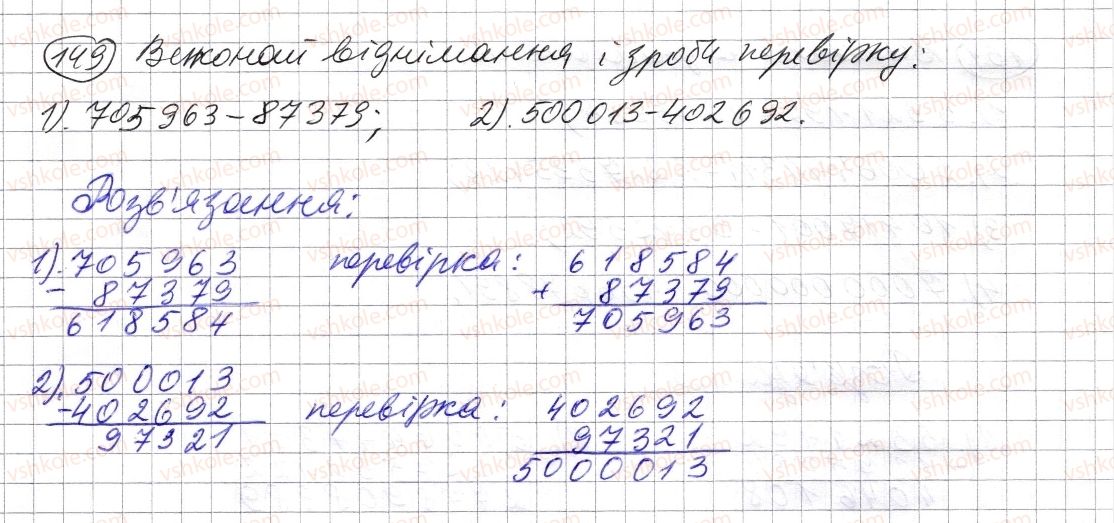 149 Виконай віднімання і зроби перевірку:
1). 705963-87379; 2). 500013-402692.
Розв'язання:
1). 705963 перевірка: 618584
- 87379 + 87379
618584 705963
2). 500013
-402692 перевірка: 402692
97321 97321
5000013